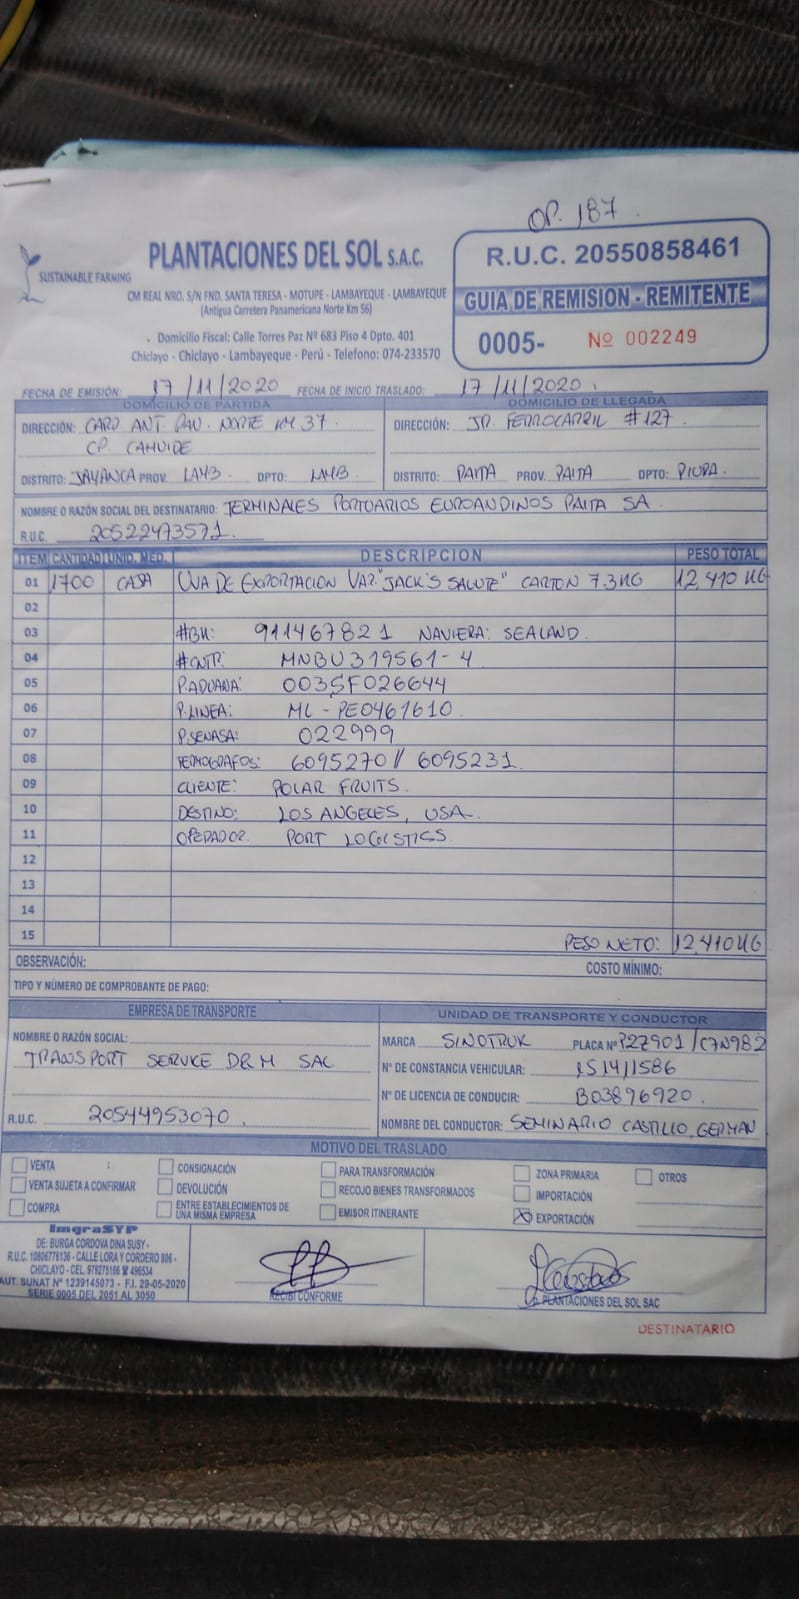 OP. 187
SUSTAINABLE FARMING
PLANTACIONES DEL SOL S.A.C.
CM REAL NRO. S/N FND. SANTA TERESA - MOTUPE - LAMBAYEQUE - LAMBAYEQUE
(Antigua Carretera Panamericana Norte Km 56)
Domicilio Fiscal: Calle Torres Paz Nº 683 Piso 4 Dpto. 401
Chiclayo - Chiclayo - Lambayeque - Perú - Telefono: 074-233570
R.U.C. 20550858461
GUIA DE REMISION - REMITENTE
0005- Nº 002249
FECHA DE EMISIÓN: 17/11/2020 FECHA DE INICIO TRASLADO: 17/11/2020
DOMICILIO DE PARTIDA
DIRECCIÓN: CARR ANT. PAN. NORTE KM 37.
CP. CAHUIDE
DISTRITO: JAYANCA PROV. LAMB. DPTO: LAMB
DOMICILIO DE LLEGADA
DIRECCIÓN: JR. FERROCARRIL #127.
DISTRITO: PAITA PROV. PAITA DPTO: PIURA.
NOMBRE O RAZÓN SOCIAL DEL DESTINATARIO: TERMINALES PORTUARIOS EUROANDINOS PAITA SA.
R.U.C. 20522473571.
ITEM CANTIDAD UNID. MED. DESCRIPCION PESO TOTAL
01 1700 CAJA UVA DE EXPORTACION VAR. "JACK'S SALUTE" CARTON 7.3KG 12,410 KG
02
03 #BK: 911467821 NAVIERA: SEALAND.
04 #CNTR: MNBU319561-4
05 P.ADUANA: 003SF026644
06 P.LINEA: ML-PE0461610.
07 P.SENASA: 022999
08 TERMOGRAFOS: 6095270// 6095231.
09 CLIENTE: POLAR FRUITS.
10 DESTINO: LOS ANGELES, USA.
11 OPERADOR: PORT LOGISTICS
12
13
14
15 PESO NETO: 12,410KG
OBSERVACIÓN:
COSTO MÍNIMO:
TIPO Y NÚMERO DE COMPROBANTE DE PAGO:
EMPRESA DE TRANSPORTE
NOMBRE O RAZÓN SOCIAL:
TRANSPORT SERVICE D&M SAC
R.U.C. 20544953070.
UNIDAD DE TRANSPORTE Y CONDUCTOR
MARCA SINOTRUK PLACA Nº P2Z901/C7N982
N° DE CONSTANCIA VEHICULAR: 151411586
N° DE LICENCIA DE CONDUCIR: B03896920.
NOMBRE DEL CONDUCTOR: SEMINARIO CASTILLO, GERMAN
MOTIVO DEL TRASLADO
VENTA CONSIGNACIÓN PARA TRANSFORMACIÓN ZONA PRIMARIA OTROS
VENTA SUJETA A CONFIRMAR DEVOLUCIÓN RECOJO BIENES TRANSFORMADOS IMPORTACIÓN
COMPRA ENTRE ESTABLECIMIENTOS DE UNA MISMA EMPRESA EMISOR ITINERANTE EXPORTACIÓN
ImgraSYP
DE: BURGA CORDOVA DINA SUSY -
R.U.C. 10806778136 - CALLE LORA Y CORDERO 806 -
CHICLAYO - CEL. 979275166 496534
AUT. SUNAT Nº 1239145073 - F.I. 29-05-2020
SERIE 0005 DEL 2051 AL 3050
RECIBI CONFORME
PLANTACIONES DEL SOL SAC
DESTINATARIO